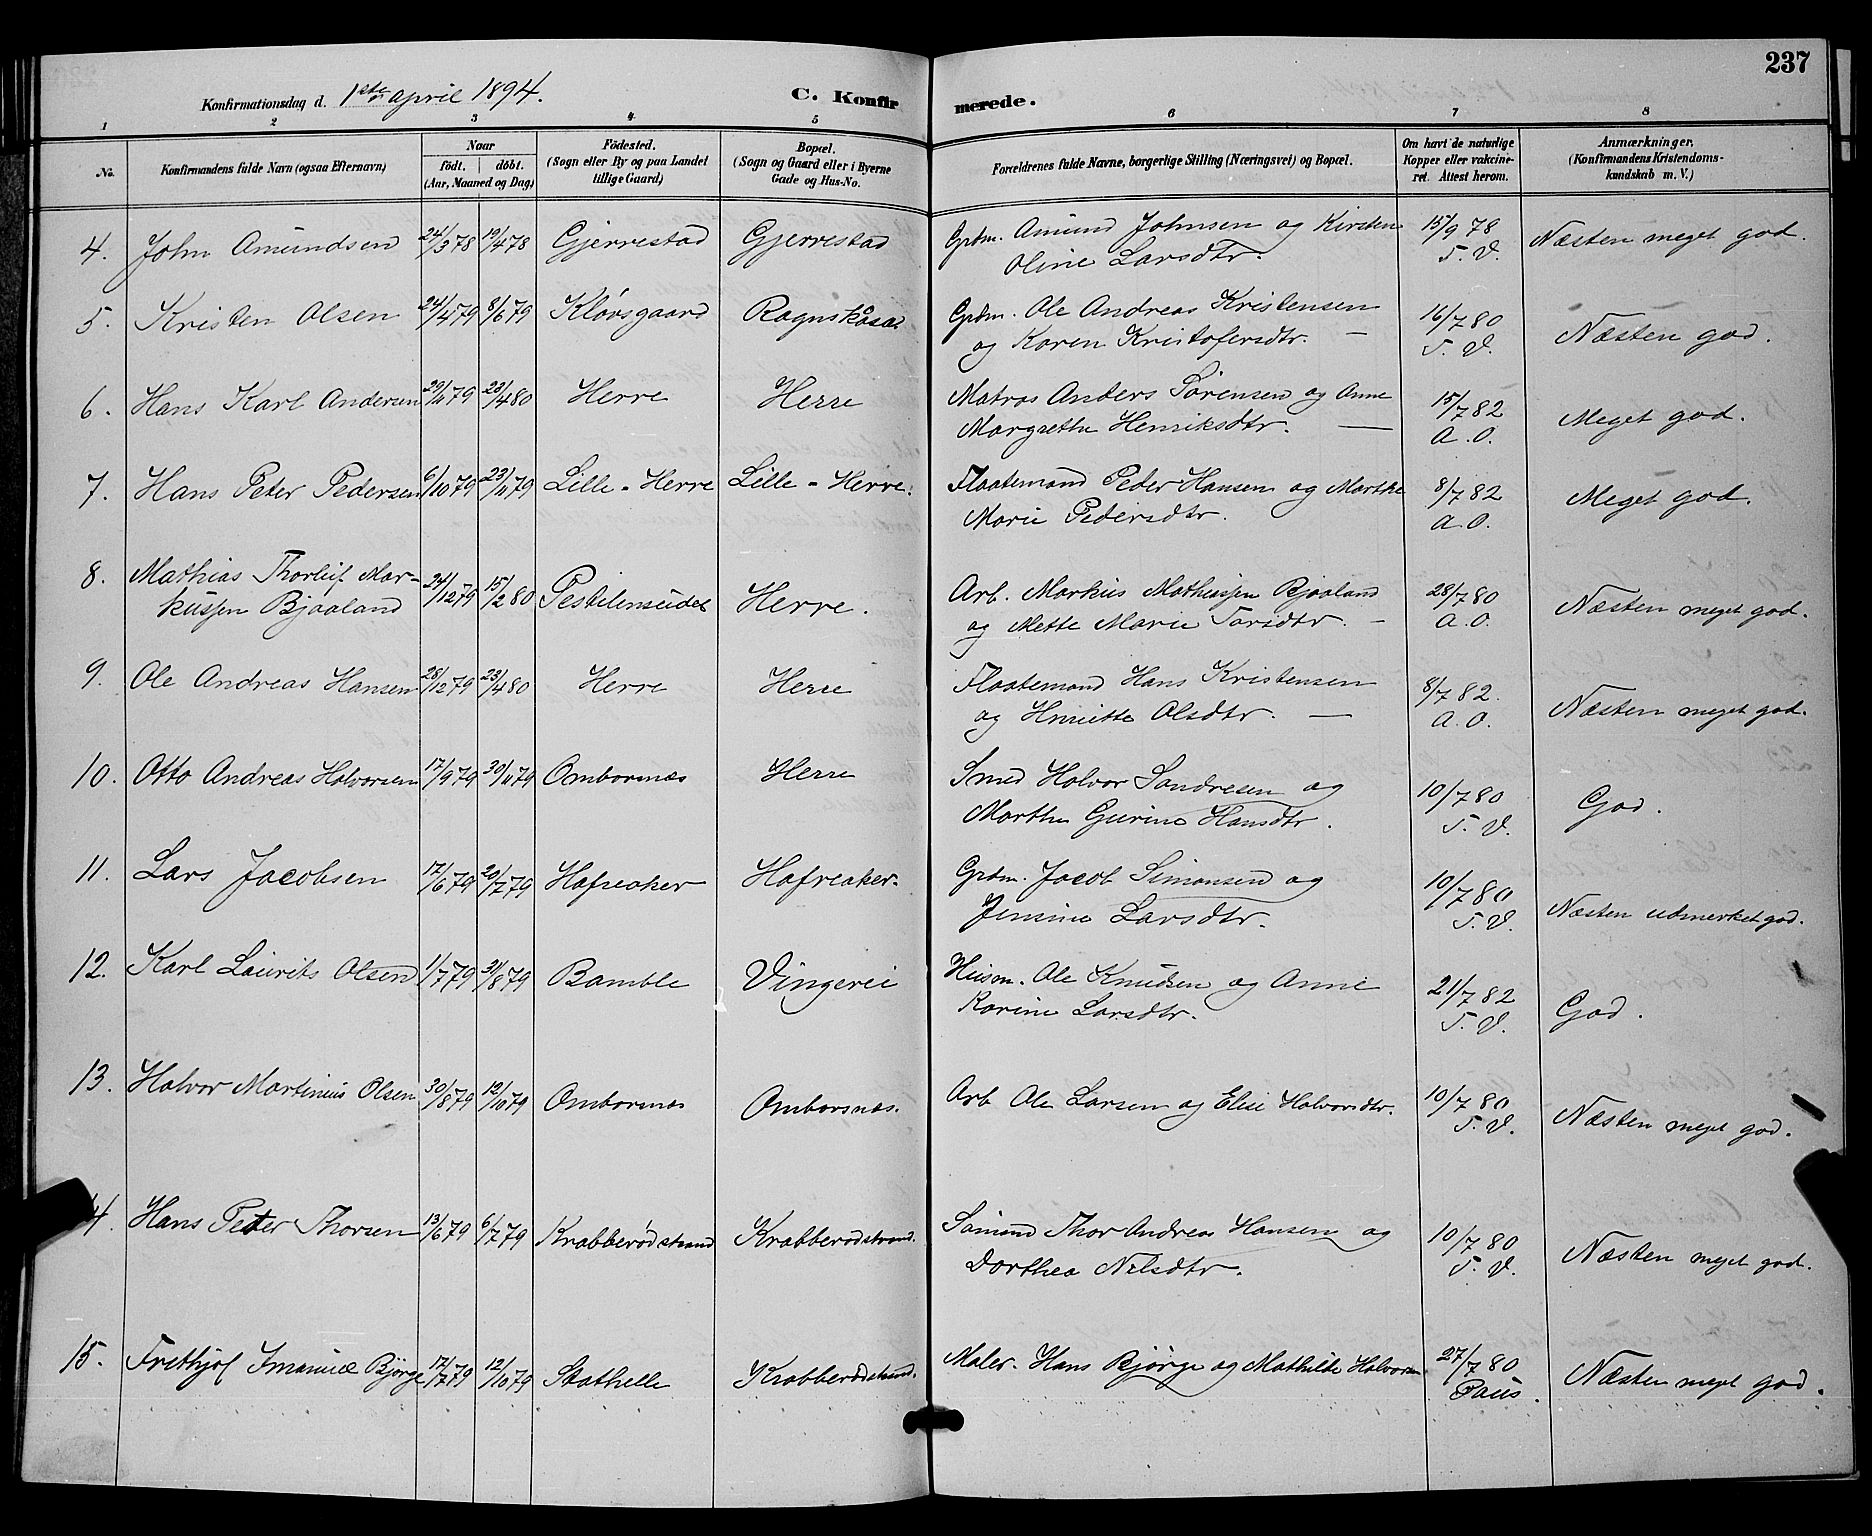 237
Konfirmationsdag d. 1ste april 1894. C. Konfirmerede.
1 2 3 4 5 6 7 8
No. Konfirmandens fulde Navn (ogsaa Efternavn) Naar født. døbt. (Aar, Maaned og Dag) Fødested. (Sogn eller By og paa Landet tillige Gaard) Bopæl. (Sogn og Gaard eller i Byerne Gade og Hus-No. Forældrenes fulde Navne, borgerlige Stilling (Næringsvei) og Bopæl. Om havt de naturlige Kopper eller vakcineret. Attest herom. Anmærkninger, (Konfirmandens Kristendomskundskab m. V.)
4. John Amundsen 24/3 78 19/4 78 Gjerrestad Gjerrestad Grdm. Amund Johnsen og Kirsten 15/9 78 Næsten meget god.
Oline Larsdtr. T. V.
5. Kristen Olsen 24/4 79 8/6 79 Kløvsgaard Ragnskåsa Grdm. Ole Andreas Kristensen 16/7 80 Næsten god.
og Karen Kristofersdtr. — T. V.
6. Hans Karl Andersen 29/11 79 23/4 80 Herre Herre Matros Anders Sørensen og Anne 15/7 82 Meget god.
Margrethe Henriksdtr. — A. O.
7. Hans Peter Pedersen 6/10 79 23/11 79 Lille-Herre Lille-Herre. Flaatemand Peder Hansen og Marthe 8/7 82 Meget god.
Marie Pedersdtr. A. O.
8. Mathias Thorleif Mar-
kussen Bjaaland 24/12 79 15/2 80 Pestilensudet Herre. Arb. Markus Mathiassen Bjaaland 28/7 80 Næsten meget god.
og Mette Marie Tarsdtr. — A. O.
9. Ole Andreas Hansen 28/12 79 23/4 80 Herre Herre Flaatemand Hans Kristensen 8/7 82. Næsten meget god.
og Henriette Olsdtr. — A. O.
10. Otto Andreas Halvorsen 17/9 79 30/11 79 Omborsnæs Herre Smed Halvor Sondresen og 10/7 80 God.
Marthe Gurine Hansdtr. T. V.
11. Lars Jacobsen 17/6 79 20/7 79 Hafreaker Hafreaker. Grdm. Jacob Simonsen og 10/7 80 Næsten udmerket god.
Jensine Larsdtr. T. V.
12. Karl Laurits Olsen 1/7 79 31/8 79 Bamble Vingerei Husm. Ole Knudsen og Anne 21/7 82 God.
Karine Larsdtr. T. V.
13. Halvor Martinius Olsen 30/8 79 12/10 79 Omborsnæs Omborsnæs. Arb Ole Larsen og Elise Halvorsdtr. 10/7 80 Næsten meget god.
T. V.
4. Hans Peter Thorsen 13/6 79 6/7 79 Krabberødstrand Krabberødstrand. Sømand Thor Andreas Hansen og 10/7 80 Næsten meget god.
Dorthea Nilsdtr. T. V.
15. Frethjof Imanuel Bjørge 17/7 79 12/10 79 Stathelle Krabberødstrand. Maler. Hans Bjørge og Mathilde Halvorsen 27/7 80 Næsten meget god.
Paus.